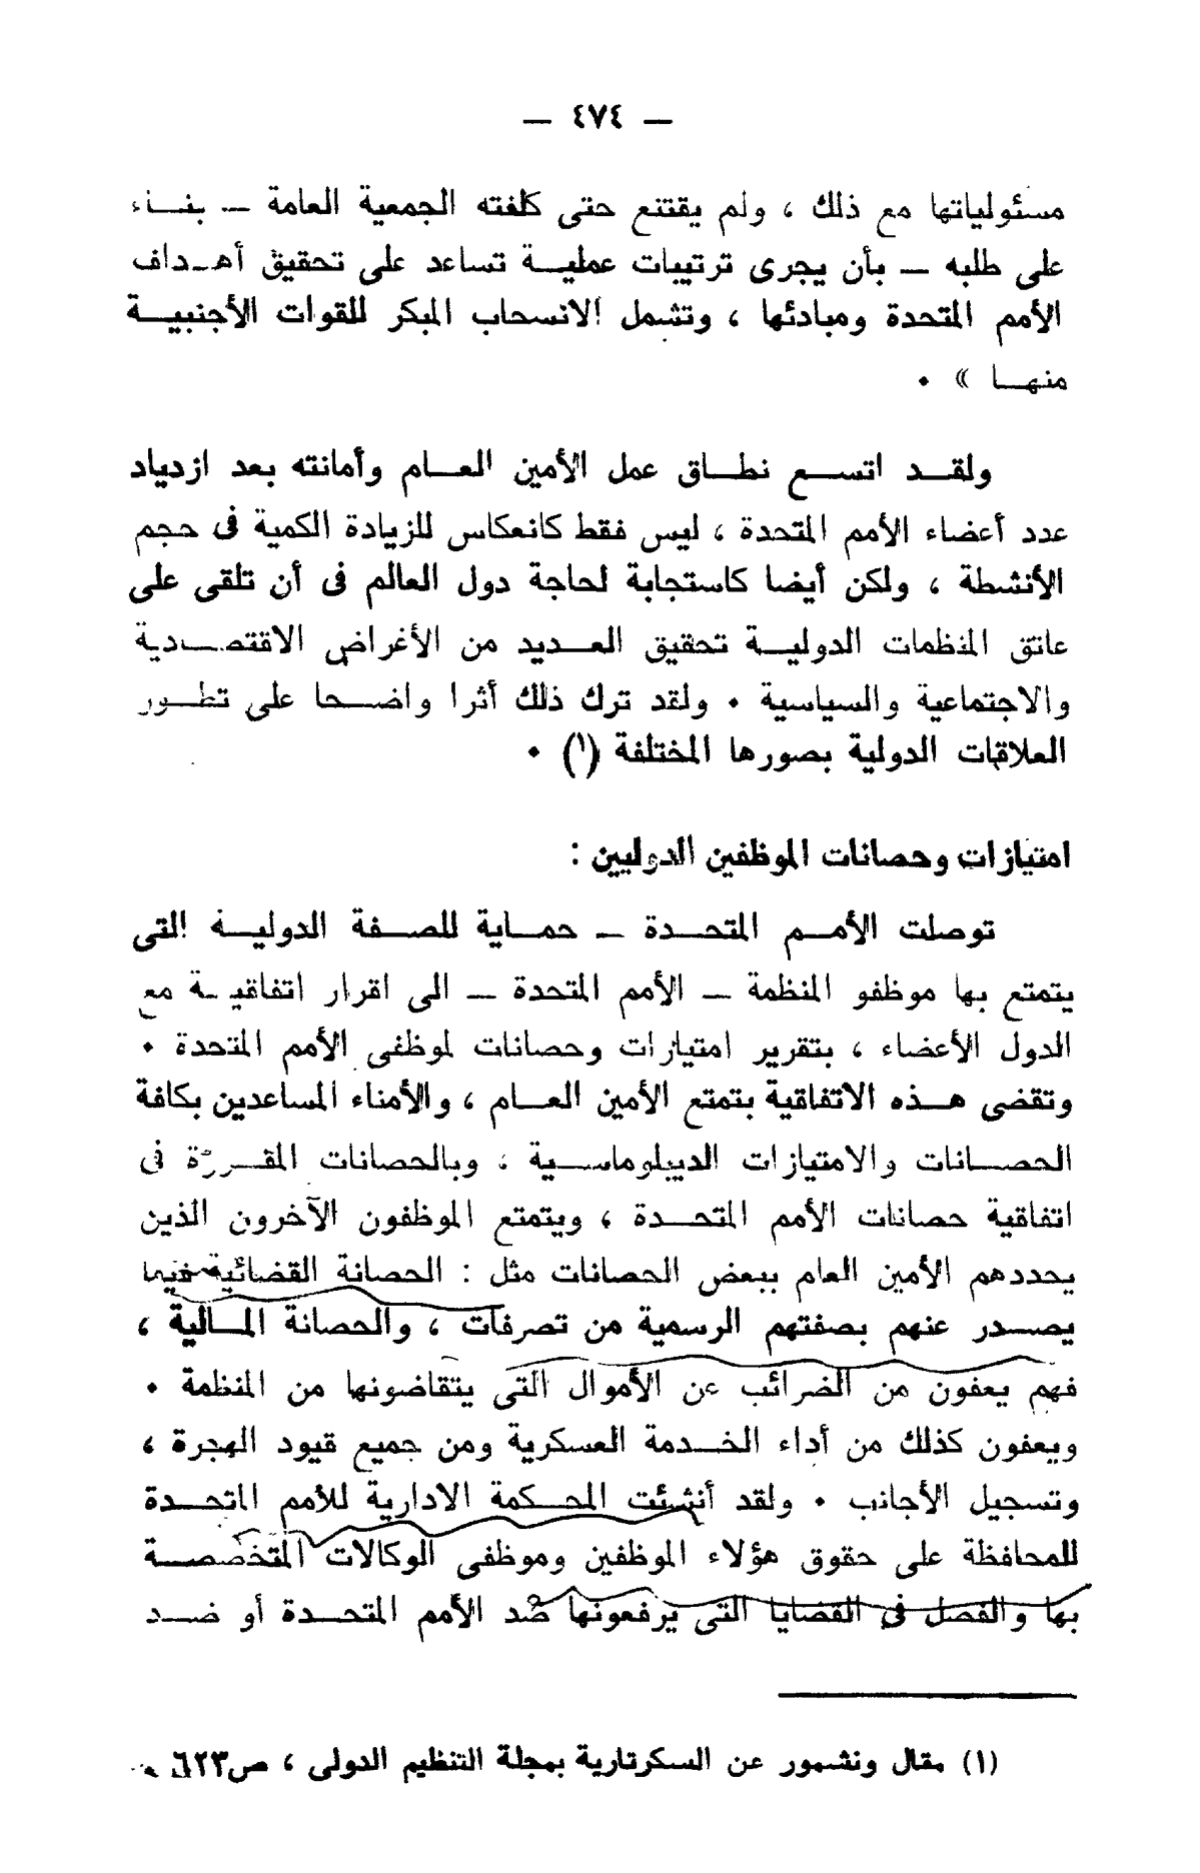 — ٤٧٤ —
مسئولياتها مع ذلك ، ولم يقتنع حتى كلفته الجمعية العامة — بنـاء
على طلبه — بأن يجرى ترتيبات عمليـة تساعد على تحقيق أهـداف
الأمم المتحدة ومبادئها ، وتشمل الانسحاب المبكر للقوات الأجنبيـة
منهـا » .
ولقـد اتسـع نطـاق عمل الأمين العـام وأمانته بعد ازدياد
عدد أعضاء الأمم المتحدة ، ليس فقط كانعكاس للزيادة الكمية فى حجم
الأنشطة ، ولكن أيضا كاستجابة لحاجة دول العالم فى أن تلقى على
عاتق المنظمات الدوليـة تحقيق العـديد من الأغراض الاقتصـادية
والاجتماعية والسياسية . ولقد ترك ذلك أثرا واضـحا على تطـور
العلاقات الدولية بصورها المختلفة (١) .
امتيازات وحصانات الموظفين الدوليين :
توصلت الأمـم المتحـدة — حمـاية للصـفة الدوليـة التى
يتمتع بها موظفو المنظمة — الأمم المتحدة — الى اقرار اتفاقيـة مع
الدول الأعضاء ، بتقرير امتيازات وحصانات لموظفى الأمم المتحدة .
وتقضى هـذه الاتفاقية بتمتع الأمين العـام ، والأمناء المساعدين بكافة
الحصـانات والامتيازات الديبلوماسـية ، وبالحصانات المقـررة فى
اتفاقية حصانات الأمم المتحـدة ، ويتمتع الموظفون الآخرون الذين
يحددهم الأمين العام ببعض الحصانات مثل : الحصانة القضائية فيما
يصـدر عنهم بصفتهم الرسمية من تصرفات ، والحصانة المـالية ،
فهم يعفون من الضرائب عن الأموال التى يتقاضونها من المنظمة .
ويعفون كذلك من أداء الخـدمة العسكرية ومن جميع قيود الهجرة ،
وتسجيل الأجانب . ولقد أنشئت المحـكمة الادارية للأمم المتحـدة
للمحافظة على حقوق هؤلاء الموظفين وموظفى الوكالات المتخصصـة
بها والفصل فى القضايا التى يرفعونها ضد الأمم المتحـدة أو ضـد
(١) مقال ونشمور عن السكرتارية بمجلة التنظيم الدولى ، ص٦٢٣